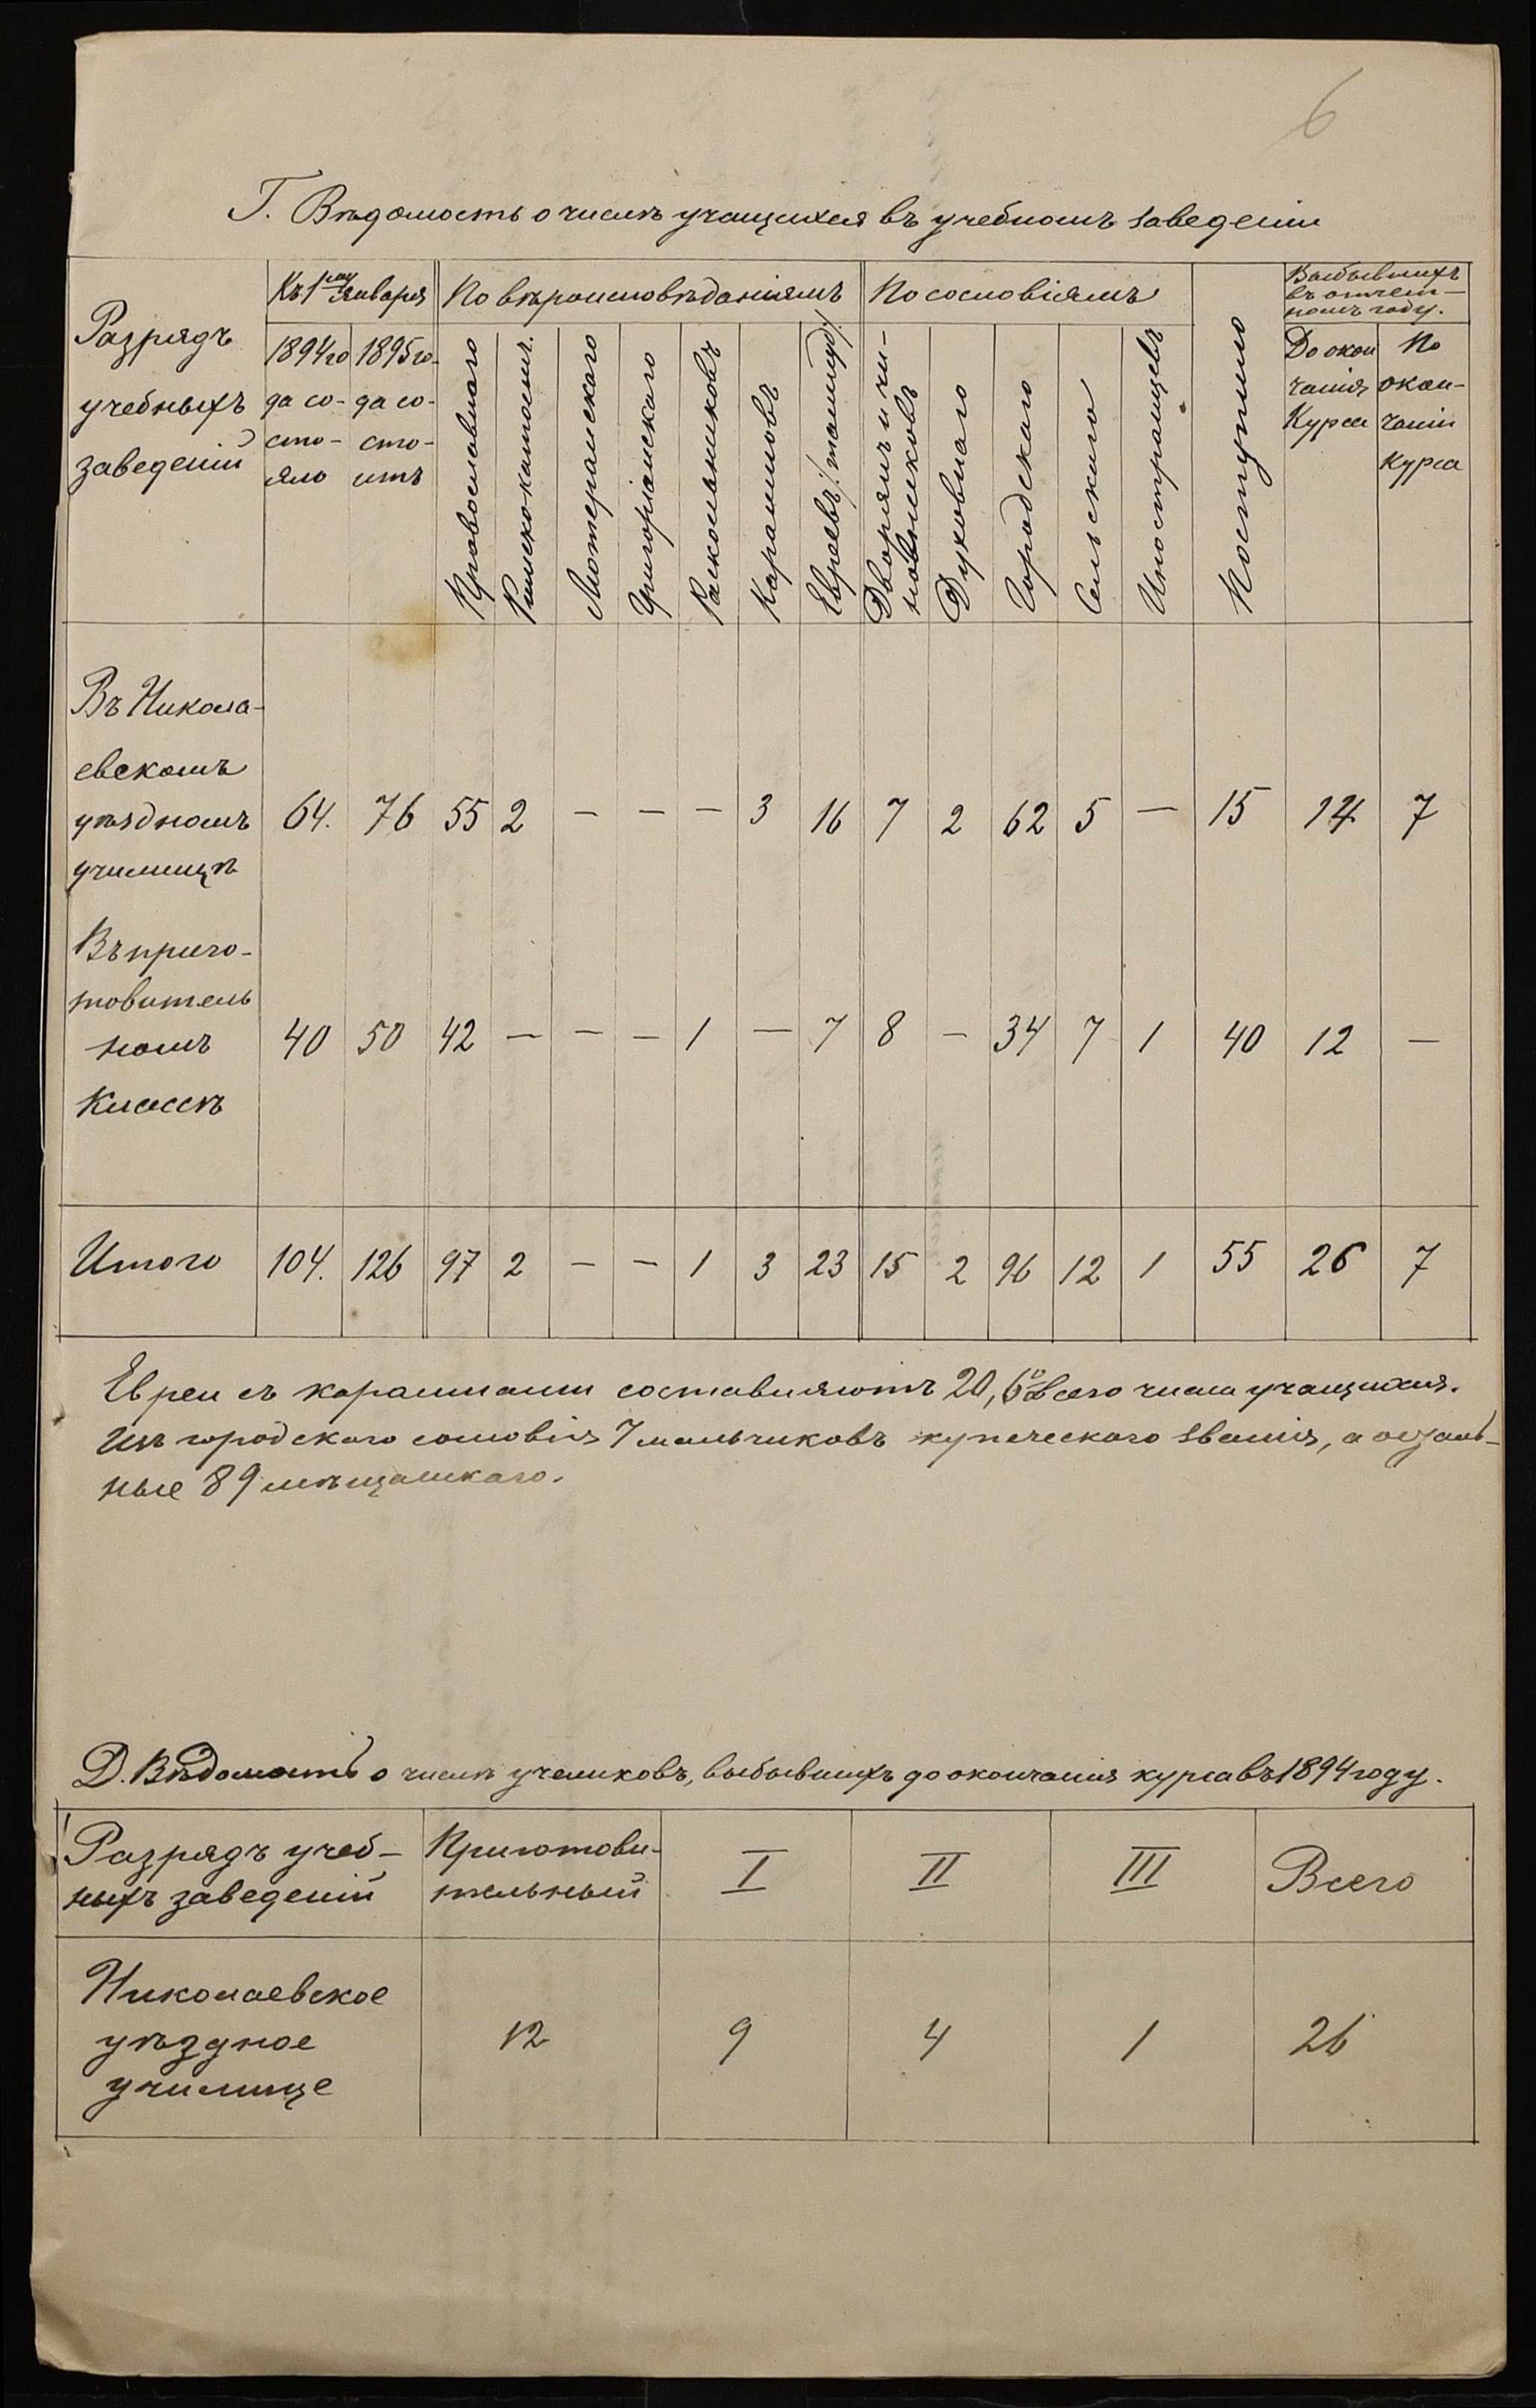 6
Г. Вѣдомость о числѣ учащихся въ учебномъ заведеніи
Разрядъ
учебныхъ
заведеній
Къ 1му Января
1894 го
да со-
сто-
яло
1895 го-
да со-
сто-
итъ
По вѣроисповѣданіямъ
Православнаго
Римско-католич.
Лютеранскаго
Григоріанскаго
Раскольниковъ
Караимовъ
Евреевъ /талмуд/
По сословіямъ
Дворянъ и чи-
новниковъ
Духовнаго
Городскаго
Сельскаго
Иностранцевъ
Поступило
Выбывшихъ
въ отчет-
номъ году.
До окон
чанія
Курса
По
окон-
чаніи
курса
Въ Никола-
евскомъ
уѣздномъ
училищѣ
64. 76 55 2 — — — 3 16 7 2 62 5 — 15 14 7
Въ приго-
товитель
номъ
Классѣ
40 50 42 — — — 1 — 7 8 — 34 7 1 40 12 —
Итого 104. 126 97 2 — — 1 3 23 15 2 96 12 1 55 26 7
Евреи съ караимами составляютъ 20,6% всего числа учащихся.
Изъ городскаго сословія 7 мальчиковъ купеческаго званія, а осталь-
ные 89 мѣщанскаго.
Д. Вѣдомость о числѣ учениковъ, выбывшихъ до окончанія курса въ 1894 году.
Разрядъ учеб-
ныхъ заведеній
Приготови-
тельный
I II III Всего
Николаевское
уѣздное
училище
12 9 4 1 26